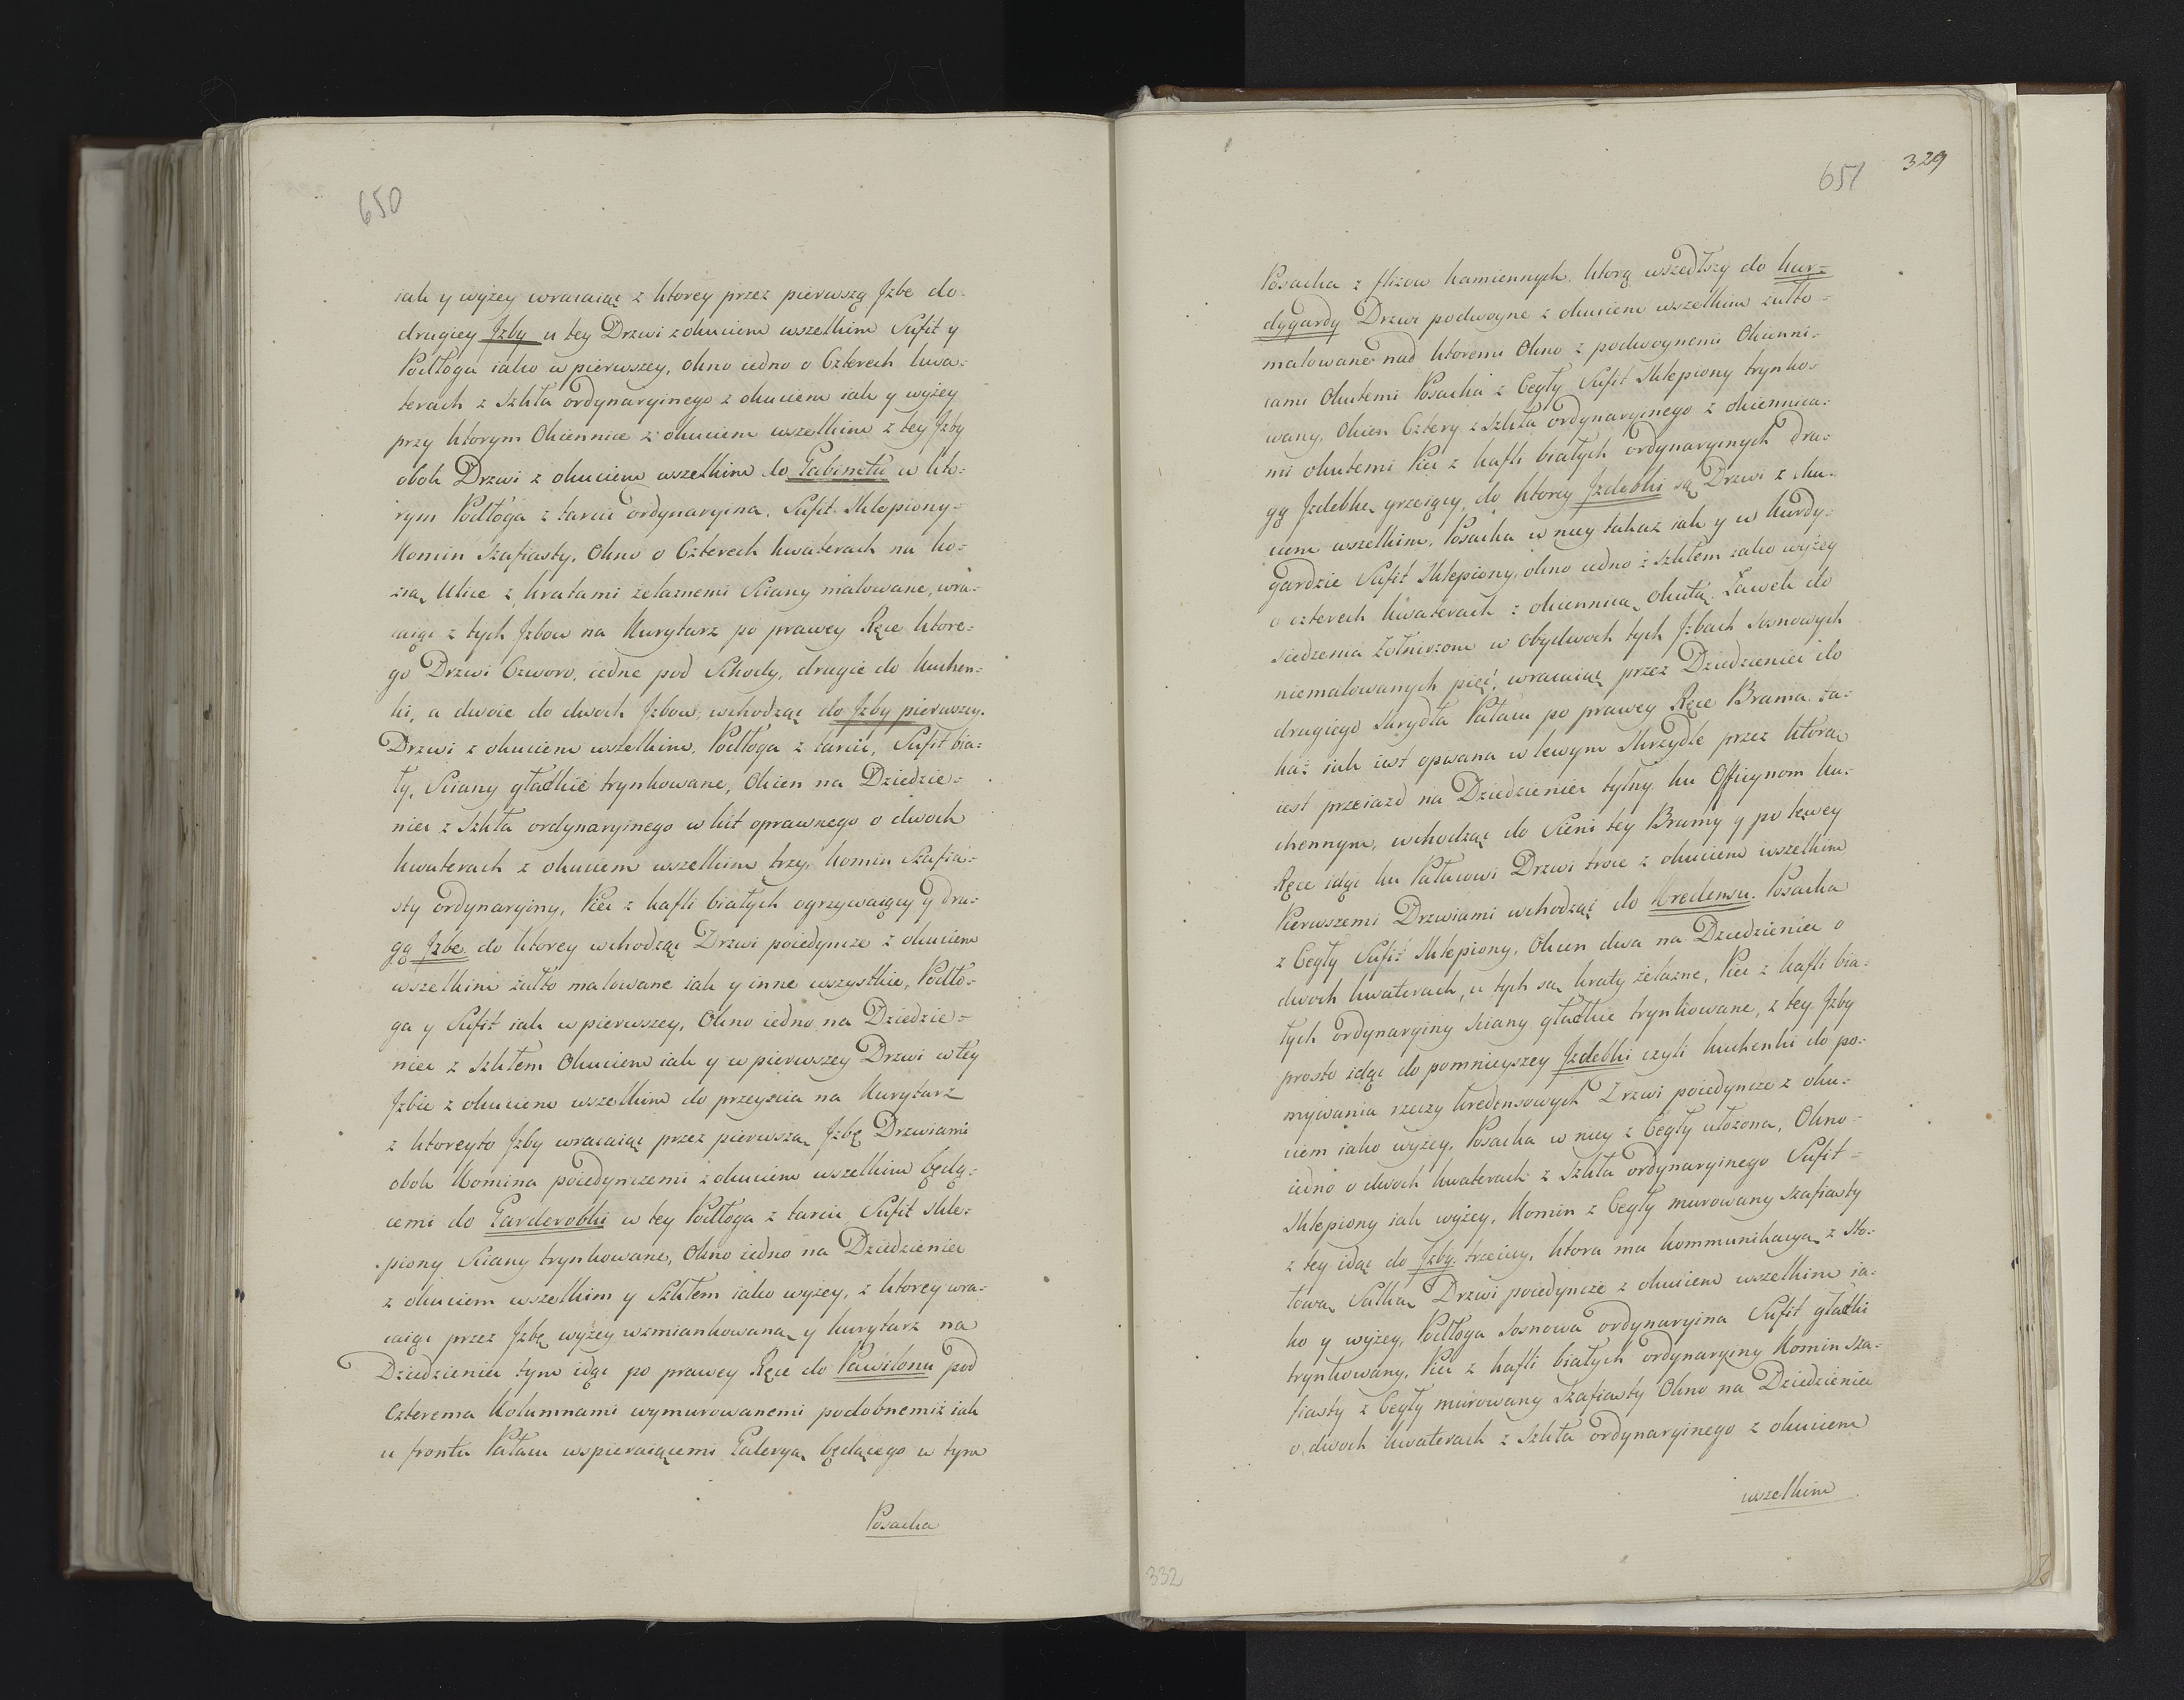 650
iak y wyżey wracaiąc z ktorey przez pierwszą Jzbe do
drugiey Jzby u tey Drzwi z okuciem wszelkim Sufit y
Podłoga iako w pierwszey, okno iedno o Czterech kwa=
terach z Szkła ordynaryinego z okuciem iak y wyżey
przy ktorym Okiennice z okuciem wszelkim z tey Jzby
obok Drzwi z okuciem wszelkim do Gabinetu w kto=
rym Podłoga z tarcic ordynaryina, Sufit Sklepiony=
Komin Szafiasty, Okno o Czterech kwaterach na ko=
zią Ulice z kratami żelaznemi Sciany malowane, wra=
caiąc z tych Jzbow na Kurytarz po prawey Ręce ktore=
go Drzwi Czworo, iedne pod Schody, drugie do kuchen=
ki, a dwoie do dwoch Jzbow, wchodząc do Jzby pierwszey.
Drzwi z okuciem wszelkim, Podłoga z tarcic, Sufit bia=
ły, Sciany gładkie trynkowane, Okien na Dziedzie=
niec z Szkła ordynaryinego w kit oprawnego o dwoch
kwaterach z okuciem wszelkim trzy, komin Szafia=
sty ordynaryiny, Piec z kafli białych ogrzywaiący y dru=
gą Jzbe do ktorey wchodząc Drzwi poiedyncze z okuciem
wszelkim żułto malowane iak y inne wszystkie, Podło=
ga y Sufit iak w pierwszey, Okno iedno na Dziedzie=
niec z Szkłem Okuciem iak y w pierwszey Drzwi w tey
Jzbie z okuciem wszelkim do przeyscia na Kurytarz
z ktoreyto Jzby wracaiąc przez pierwszą Jzbę Drzwiami
obok Komina poiedynczemi z okuciem wszelkim będą=
cemi do Garderobki w tey Podłoga z tarcic Sufit skle=
piony Sciany trynkowane, Okno iedno na Dziedzieniec
z okuciem wszelkim y Szkłem iako wyżey, z ktorey wra=
caiąc przez Jzbę wyżey wzmiankowaną y kurytarz na
Dziedzieniec tym idąc po prawey Ręce do Pawilonu pod
Czterema Kolumnami wymurowanemi podobnemiż iak
u frontu Pałacu wspieraiącemi Galeryą będącego w tym
Posacka
651 329
Posacka z flizow kamiennych, ktorą wszedłszy do kur=
dygardy Drzwi podwoyne z okuciem wszelkim żułto=
malowane nad ktoremi Okno z podwoynemi Okienni=
cami Okutemi Posacka z Cegły Sufit Sklepiony trynko=
wany, Okien Cztery z szkła ordynaryinego z okiennica=
mi okutemi Piec z kafli białych ordynaryinych dru=
gą Jzdebke grzeiący, do ktorey Jzdebki są Drzwi z oku=
ciem wszelkim, Posacka w niey takaż iak y w kurdy=
gardzie Sufit Sklepiony, okno iedno z szkłem iako wyżey
o czterech kwaterach z okiennicą Okutą. Ławek do
siedzenia Zołnirzom w obydwoch tych Jzbach Sosnowych
niemalowanych pięć, wracaiąc przez Dziedzieniec do
drugiego Skrydła Pałacu po prawey Ręce Brama ta=
każ iak iest opisana w lewym Skrzydle przez ktorą
iest przeiazd na Dziedzieniec tylny ku Officynom ku=
chennym, wchodząc do Sieni tey Bramy y po lewey
Ręce idąc ku Pałacowi Drzwi troie z okuciem wszelkim
Pierwszemi Drzwiami wchodząc do Kredensu. Posacka
z Cegły Sufit Sklepiony, Okien dwa na Dziedzieniec o
dwoch kwaterach, u tych są kraty żelazne, Piec z kafli bia=
łych ordynaryiny sciany gładkie trynkowane, z tey Jzby
prosto idąc do pomnieyszey Jzdebki czyli kuchenki do po=
mywania rzeczy kredensowych Drzwi poiedyncze z oku=
ciem iako wyżey, Posacka w niey z Cegły ułożona, Okno=
iedno o dwoch kwaterach z Szkła ordynaryinego Sufit=
Sklepiony iak wyżey, Komin z Cegły murowany szafiasty
z tey idąc do Jzby trzeciey, ktora ma kommunikacyą z Sto=
łową Salką Drzwi poiedyncze z okuciem wszelkim ia=
ko y wyżey, Podłoga Sosnowa ordynaryina Sufit gładki
trynkowany, Piec z kafli białych ordynaryiny Komin sza=
fiasty z Cegły murowany Szafiasty Okno na Dziedzieniec
o dwoch kwaterach z Szkła ordynaryinego z okuciem
wszelkim
332